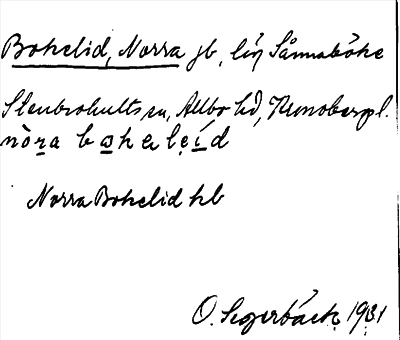 Bohelid, Norra gb, lin Sånnaböke
Stenbrohults sn, Allbo hd, Kronobergsl.
nòra bɷheleíd
Norra Bohelid hb
O. Segerbäck 1931